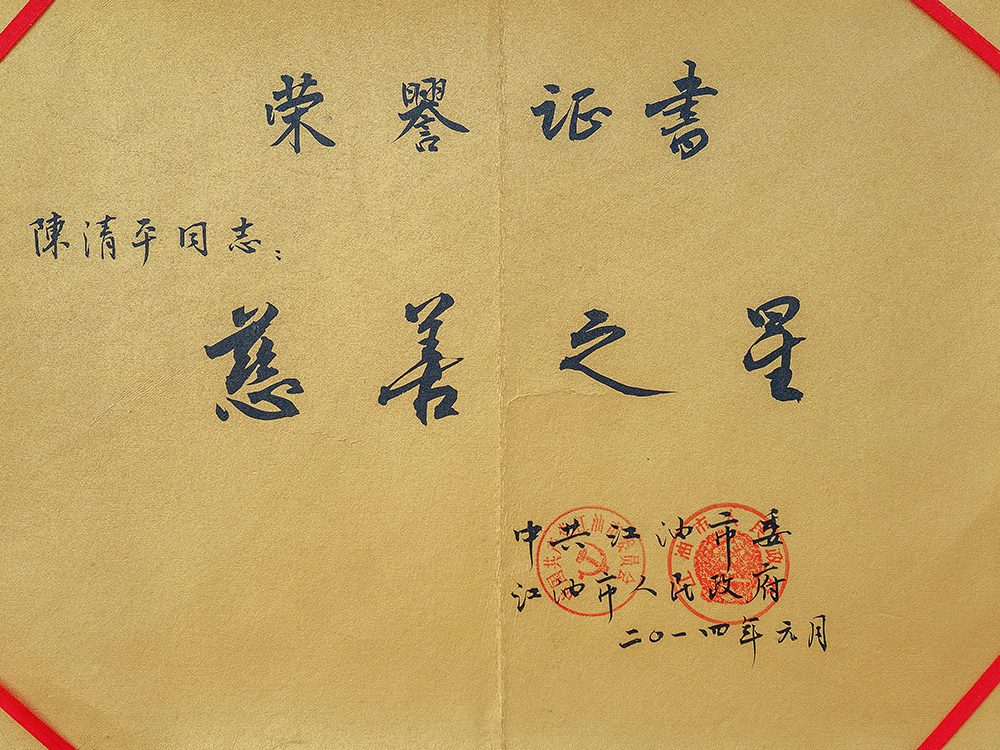 荣誉证书
陳清平同志：
慈善之星
中共江油市委
江油市人民政府
二〇一四年元月